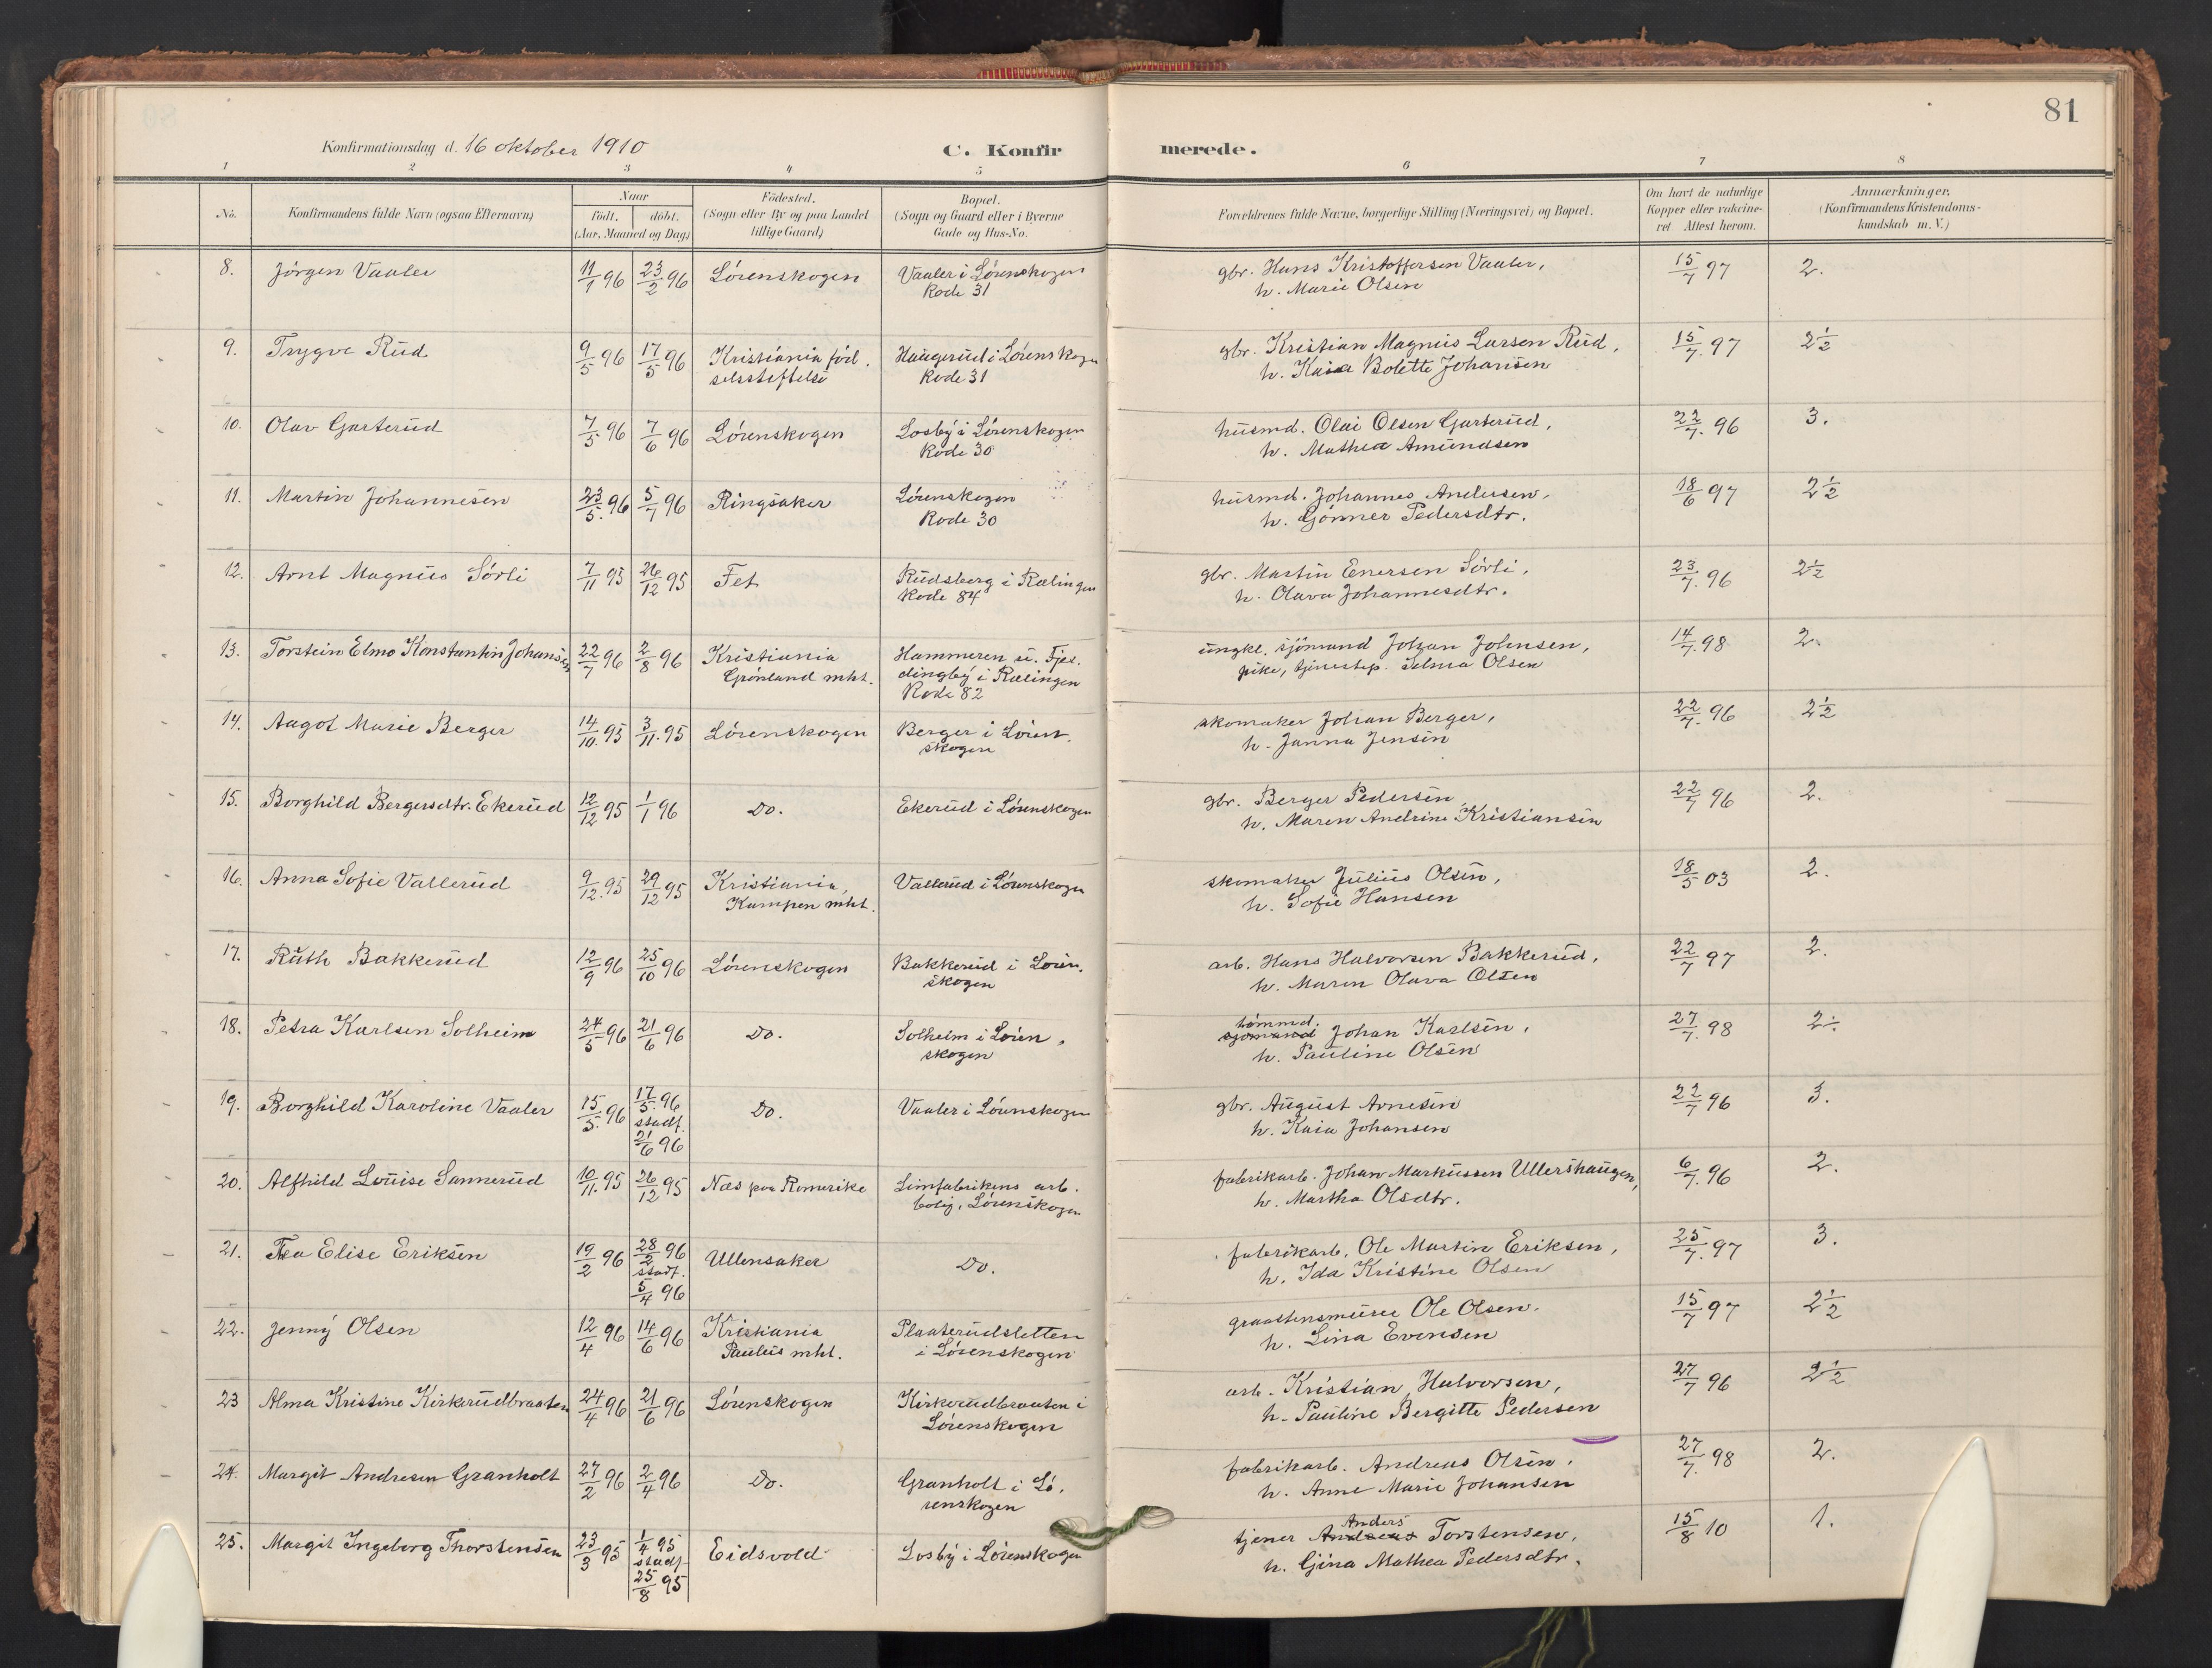 81
Konfirmationsdag d. 16 oktober 1910
C. Konfirmerede.
1 2 3 4 5 6 7 8
No. Konfirmandens fulde Navn (ogsaa Efternavn) Naar født. døbt. (Aar, Maaned og Dag) Födested. (Sogn eller By og paa Landet tillige Gaard) Bopæl. (Sogn og Gaard eller i Byerne Gade og Hus-No. Forældrenes fulde Navne, borgerlige Stilling (Næringsvei) og Bopæl. Om havt de naturlige Kopper eller vakcineret Attest herom. Anmærkninger. (Konfirmandens Kristendomskundskab m. V.)
8. Jörgen Vaaler 11/1 96 23/2 96 Lörenskogen Vaaler i Lörenskogen gbr. Hans Kristoffersen Vaaler, 15/7 97 2.
Rode 31 h. Marie Olsen
9. Trygve Rud 9/5 96 17/5 96 Kristiania föd. Haugerud i Lörenskogen gbr. Kristian Magnus Larsen Rud, 15/7. 97 2½
selsstiftelse Rode 31 h. Kaia Bolette Johansen
10. Olav Garterud 7/5 96 7/6 96 Lörenskogen Losby i Lörenskogen husmd. Olai Olsen Garterud, 22/7. 96 3.
Rode 30 h. Mathea Amundsen
11. Martin Johannesen 23/5. 96 5/7 96 Ringsaker Lörenskogen husmd. Johannes Andersen, 18/6 97 2½
Rode 30 h. Gönner Pedersdtr.
12. Arnt Magnus Sörli 7/11 95 26/12 95 Fet Rudsberg i Rælingen gbr. Martin Enersen Sörli, 23/7. 96 2½
Rode 84 h. Olava Johannesdtr.
13. Torstein Elmo Konstantin Johansen 22/7 96 2/8 96 Kristiania Hammeren u. Fjel. ungke. sjömand Johan Johnsen, 14/7. 98 2.
Grönland mht. dingby i Rælingen pike, tjenestep. Selma Olsen
Rode 82
14. Aagot Marie Berger 14/10. 95 3/11. 95 Lörenskogen Berger i Lören. skomaker Johan Berger, 22/7. 96 2½
skogen h. Janna Jensen
15. Borghild Bergersdtr. Ekerud 12/12 95 1/1 96 Do. Ekerud i Lörenskogen gbr. Berger Pedersen, 22/7 96 2.
h. Maren Andrine Kristiansen
16. Anna Sofie Vallerud 9/12. 95 29/12 95 Kristiania, Vallerud i Lörenskogen skomaker Julius Olsen, 18/5 03 2.
Kampen mht. h. Sofie Hansen
17. Ruth Bakkerud 12/9 96 25/10 96 Lörenskogen Bakkerud i Lören. arb. Hans Halvorsen Bakkerud, 22/7 97 2.
skogen h. Maren Olava Olsen
18. Petra Karlsen Solheim 24/5 96 21/6 96 Do. Solheim i Lören. tömmd. sjömand Johan Karlsen, 27/7. 98 2÷
skogen h. Pauline Olsen
19. Borghild Karoline Vaaler 15/5. 96 17/5. 96 Do. Vaaler i Lörenskogen gbr. August Arnesen 22/7 96 3.
stadf. h. Kaia Johansen
21/6 96
20. Alfhild Louise Sannerud 10/11. 95 26/12 95 Næs paa Romerike Limfabrikens arb. fabrikarb. Johan Markussen Ullershaugen, 6/7. 96 2.
bolig, Lörenskogen h. Martha Olsdtr.
21. Thea Elise Eriksen 19/2 96 28/2 96 Ullensaker Do. fabrikarb. Ole Martin Eriksen, 25/7. 97 3.
stadf. h. Ida Kristine Olsen
5/4 96
22. Jenny Olsen 12/4 96 14/6 96 Kristiania Plaaterudsletten graastensmurer Ole Olsen. 15/7 97 2½
Paulus mht. i Lörenskogen h. Lina Evensen
23 Alma Kristine Kirkerudbraaten 24/4 96 21/6 96 Lörenskogen Kirkerudbraaten i arb. Kristian Halvorsen, 27/7 96 2½
Lörenskogen h. Pauline Bergitte Pedersen
24. Margit Andresen Granholt 27/2 96 2/4 96 Do. Granholt i Lö. fabrikarb. Andreas Olsen, 27/7. 98 2.
renskogen h. Anne Marie Johansen
25. Margit Ingeborg Thorstensen 23/3 95 1/4 95 Eidsvold Losby i Lörenskogen tjener Andreas Anders Torstensen, 15/8 10 1.
stadf. h. Gina Mathea Pedersdtr.
25/8 95